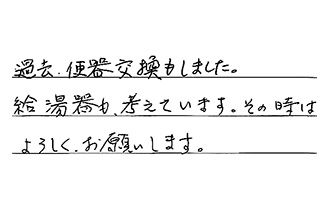 過去、便器交換もしました。
給湯器も、考えています。その時は
よろしく、お願いします。